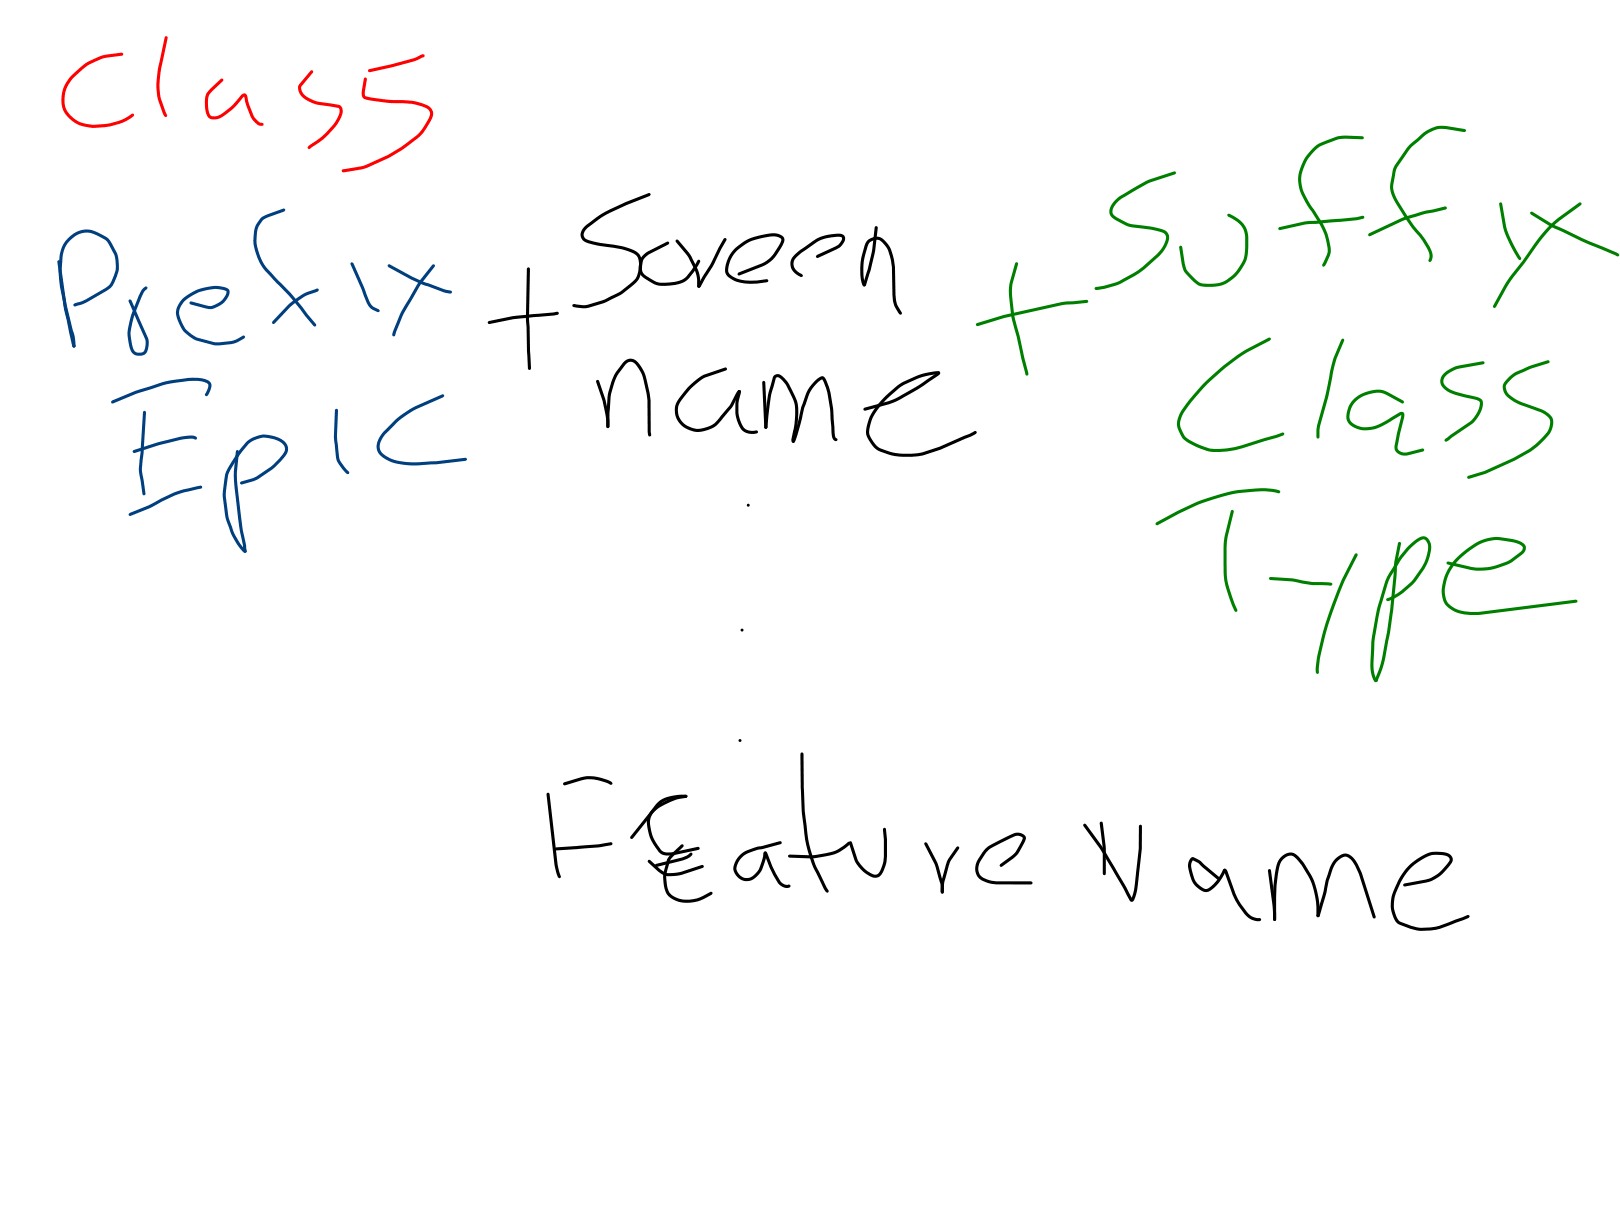 Class
Prefix + Screen + Suffix
Epic name Class
Type
Feature Name